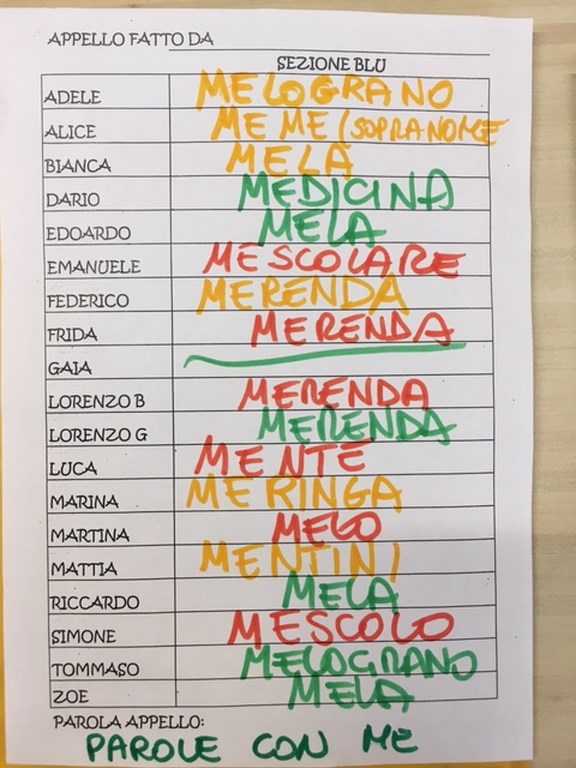 APPELLO FATTO DA
SEZIONE BLU
ADELE MELOGRANO
ALICE MEME (SOPRANOME
BIANCA MELA
DARIO MEDICINA
EDOARDO MELA
EMANUELE MESCOLARE
FEDERICO MERENDA
FRIDA MERENDA
GAIA
LORENZO B MERENDA
LORENZO G MERENDA
LUCA MENTE
MARINA MERINGA
MARTINA MELO
MATTIA MENTINI
RICCARDO MELA
SIMONE MESCOLO
TOMMASO MELOGRANO
ZOE MELA
PAROLA APPELLO:
PAROLE CON ME